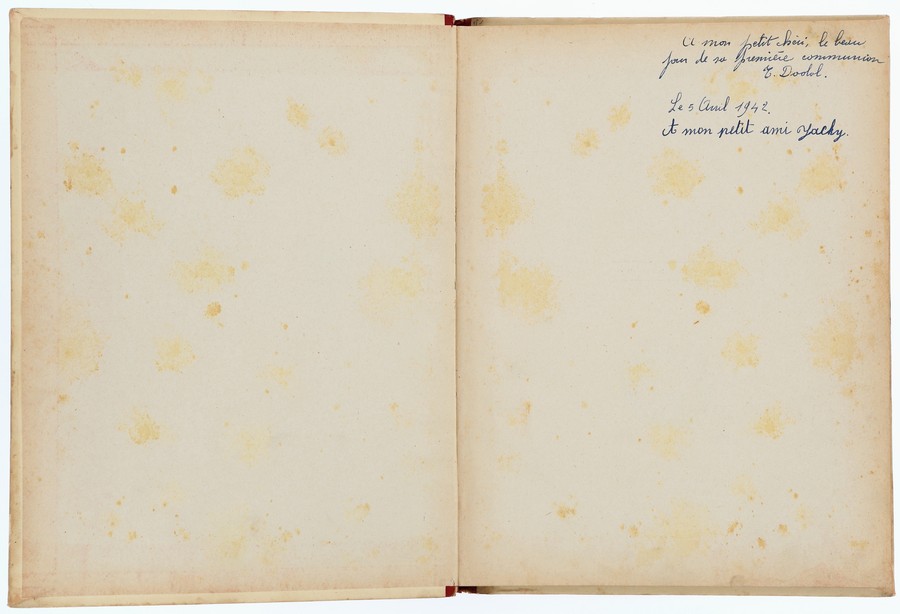 A mon petit chéri, le beau
jour de sa première communion
T. Dodol.
Le 5 Avril 1942.
A mon petit ami Jacky.